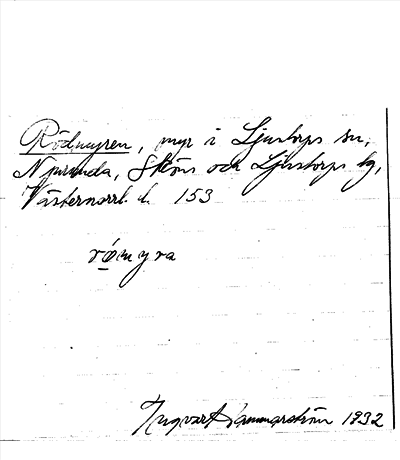 Rödmyren, myr i Ljustorps sn,
Njurunda, Sköns och Ljustorps tg,
Västernorrl. l. 153
römyra
Ingvar Hammarström 1932